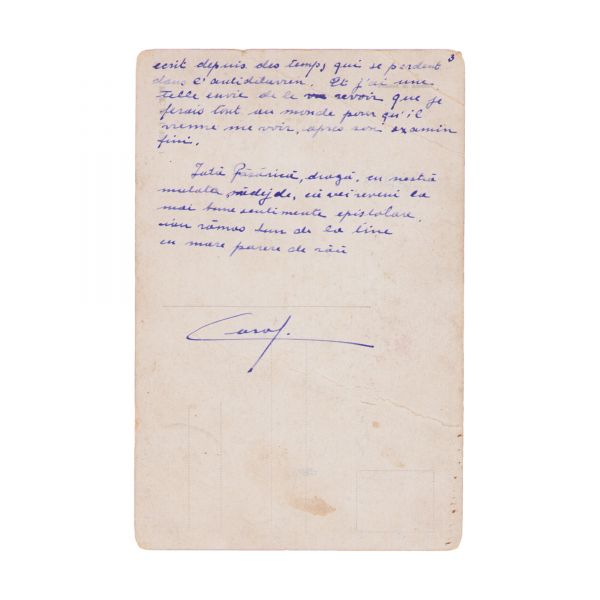 3
écrit depuis des temps, qui se perdent
dans l'antideluvien. Et j'ai une
telle envie de le revoir que je
ferais tout au monde pour qu'il
vienne me voir, apres son examin
fini.
Iată Păsărică, dragă, cu nestră
mutata nădejde, că vei reveni la
mai bune sentimente epistolare,
am rămas bun de la tine
cu mare parere de rău
Carol